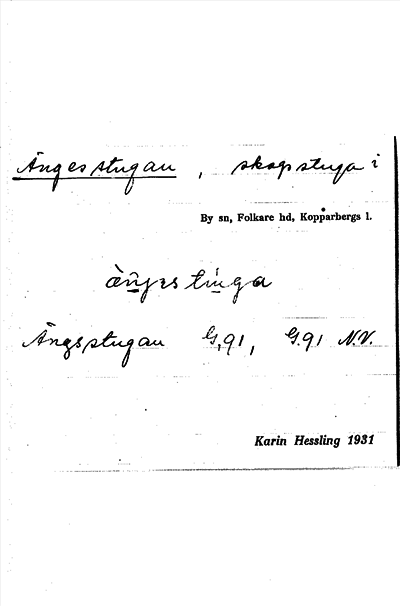 Ängesstugan, skogsstuga i
By sn, Folkare hd, Kopparbergs l.
Ängsstugan G.91, G.91 N.V.
Karin Hessling 1931